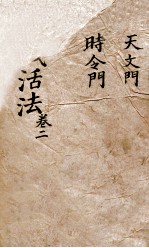 天文門
時令門
活法卷二